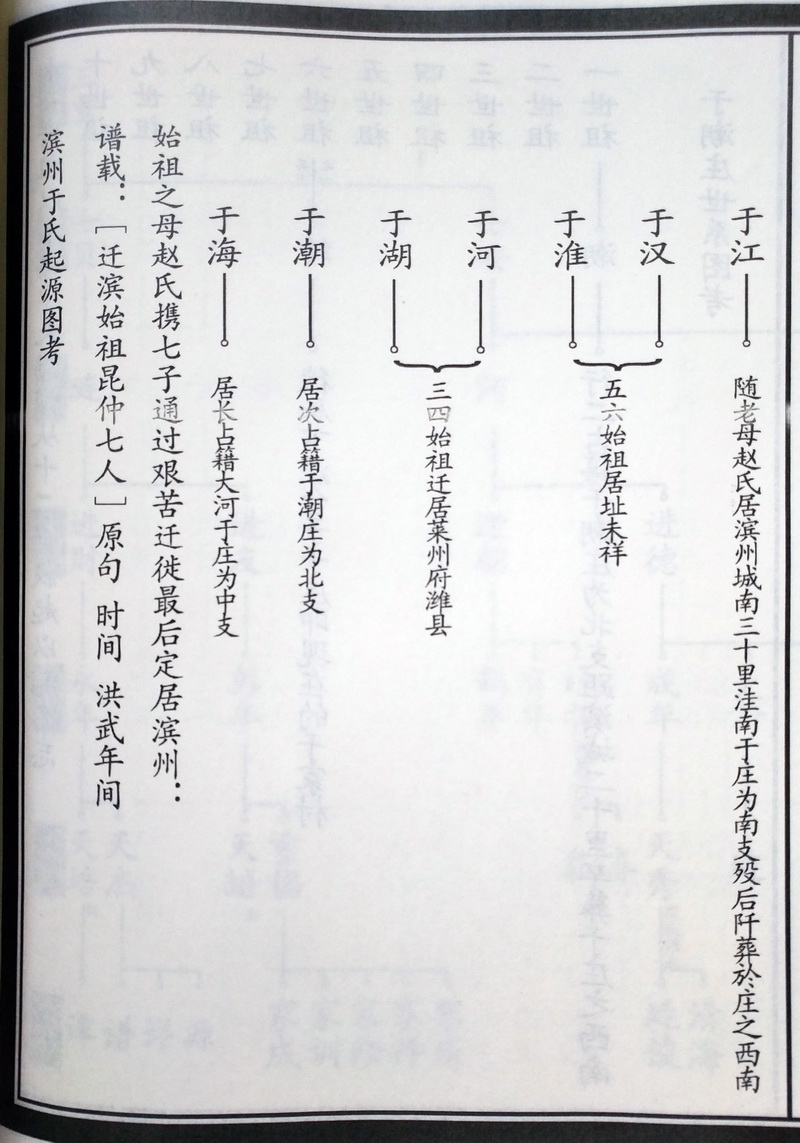 滨州于氏起源图考
谱载：［迁滨始祖昆仲七人］原句 时间 洪武年间
始祖之母赵氏携七子通过艰苦迁徙最后定居滨州：
于海
居长占籍大河于庄为中支
于潮
居次占籍于潮庄为北支
于湖
于河
三四始祖迁居莱州府潍县
于淮
于汉
五六始祖居址未祥
于江
随老母赵氏居滨州城南三十里洼南于庄为南支殁后阡葬於庄之西南